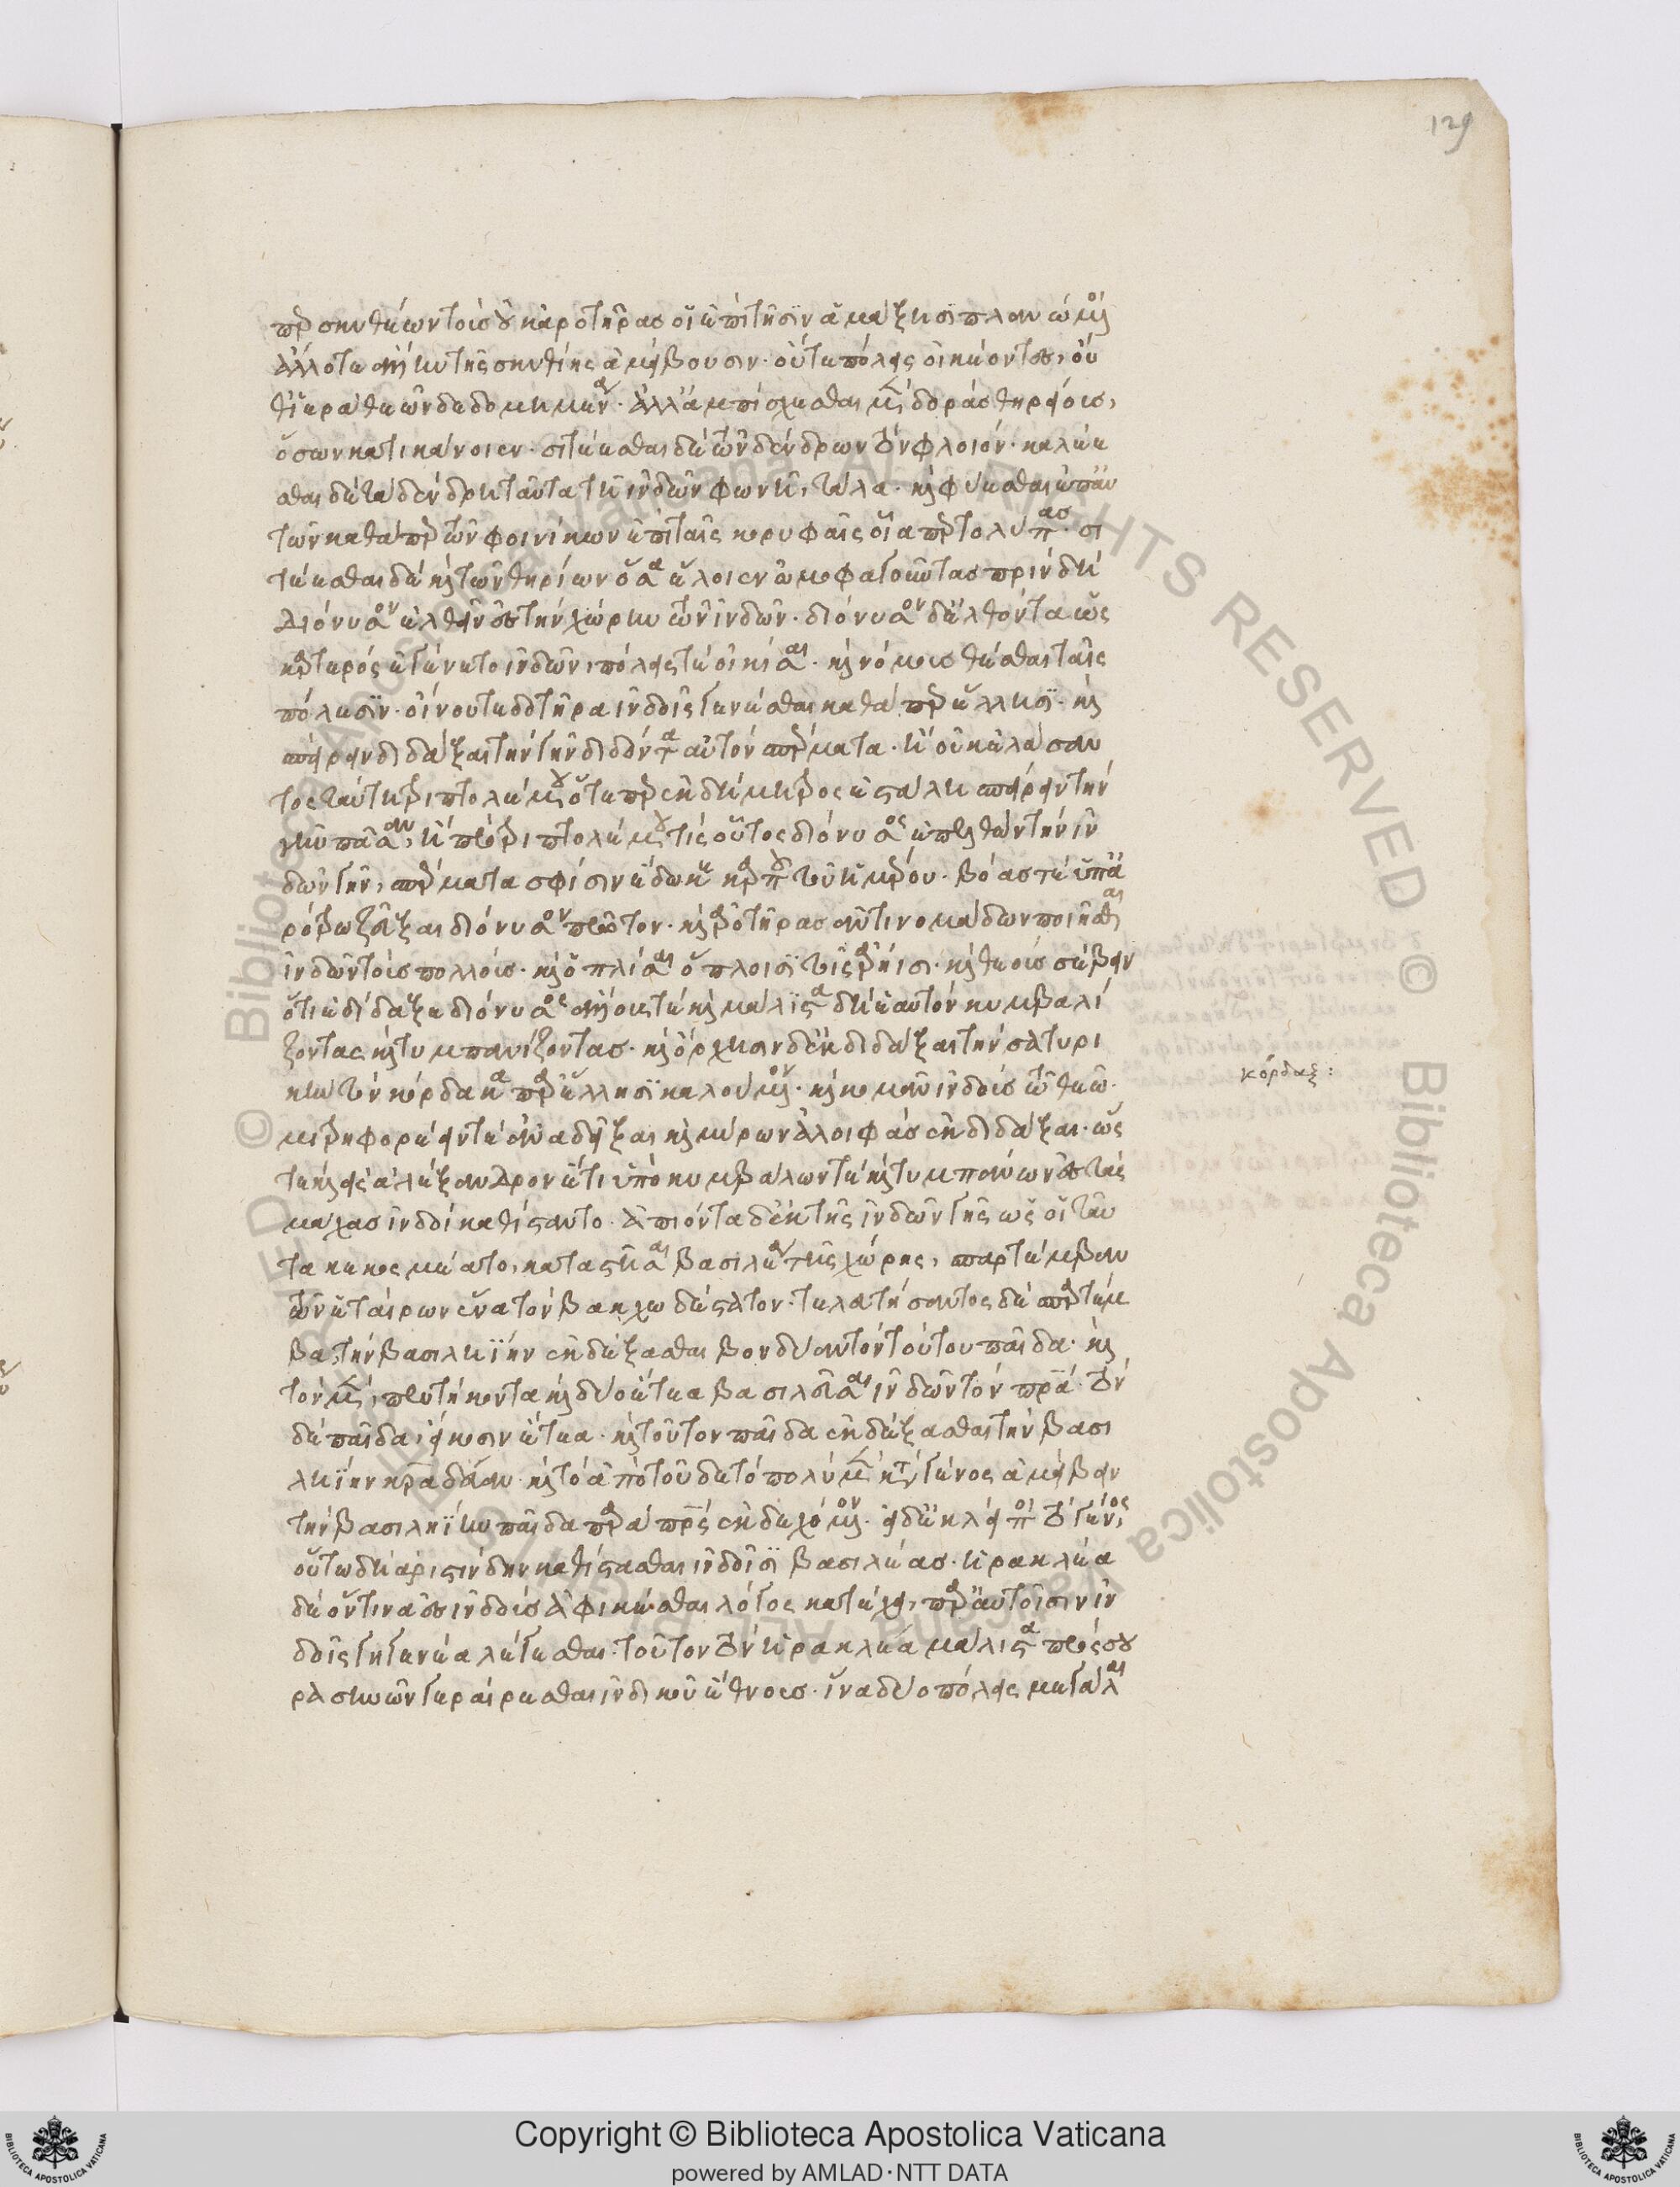 περ σκυθέων τοὺς οὐκ ἀροτῆρας οἳ ἐπὶ τῆσιν ἁμάξησι πλανώμενοι
ἄλλοτε ἄλλην τῆς σκυθίης ἀμείβουσιν· οὔτε πόλεις οἰκέοντες, οὔ
θ' ἱερὰ θεῶν δεδομημένα· ἀλλ' ἀμπίσχεσθαι μὲν δορὰς θηρείους,
ὅσων κατακάνοιεν· σιτέεσθαι δὲ τῶν δένδρων τὸν φλοιόν· καλέε
σθαι δὲ τὰ δένδρη ταῦτα τῆ ἰνδῶν φωνῆ, τάλα· καὶ φύεσθαι ἐπαυ
τῶν καθάπερ τῶν φοινίκων ἐπὶ ταῖς κορυφαῖς οἷα περ τολύπας· σι
τέεσθαι δὲ καὶ τῶν θηρίων ὅσα ἕλοιεν ὠμοφαγέοντας πρὶν δὴ
διόνυσον ἐλθεῖν ἐς τὴν χώρην τῶν ἰνδῶν· διόνυσον δὲ ἐλθόντα ὡς
καρτερὸς ἐγένετο ἰνδῶν, πόλεις τὲ οἰκίσαι· καὶ νόμους θέσθαι ταῖς
πόλεσιν· οἴνου τε δοτῆρα ἰνδοῖς γενέσθαι καθάπερ ἕλλησι· καὶ
σπείρειν διδάξαι τὴν γῆν διδόντα αὐτὸν σπέρματα· ἢ οὐκ ἐλάσαν
τος ταύτη τριπτολέμου ὅτε περ ἐκ δήμητρος ἐστάλη σπείρειν τὴν
γῆν πᾶσαν, ἢ πρὸ τριπτολέμου τὶς οὗτος διόνυσος ἐπελθὼν τὴν ἰν
δῶν γῆν, σπέρματα σφίσιν ἔδωκε καρποῦ τοῦ ἡμέρου· βόας τὲ ὑπ' ἀ
ρότρω ζεῦξαι διόνυσον πρῶτον· καὶ ἀροτῆρας ἀντὶ νομάδων ποιῆσαι
ἰνδῶν τοὺς πολλούς· καὶ ὁπλίσαι ὅπλοισι τοῖς ἀρηίοισι· καὶ θεοὺς σέβειν
ὅτι ἐδίδαξε διόνυσος ἄλλους τὲ καὶ μάλιστα δὴ ἑαυτὸν κυμβαλί
ζοντας καὶ τυμπανίζοντας· καὶ ὄρχησιν δὲ ἐκδιδάξαι τὴν σατυρι
κὴν τὸν κόρδακα παρ' ἕλλησι καλούμενον· καὶ κομᾶν ἰνδοὺς τῶ θεῶ·
μιτρηφορέειν τὲ ἀναδεῖξαι καὶ μύρων ἀλοιφὰς ἐκδιδάξαι· ὥς
τε καὶ εἰς ἀλέξανδρον ἔτι ὑπὸ κυμβάλων τὲ καὶ τυμπάνων ἐς τὰς
μάχας ἰνδοὶ καθίσταντο· ἀπιόντα δὲ ἐκ τῆς ἰνδῶν γῆς ὥς οἱ ταῦ
τα κεκοσμέατο, καταστῆσαι βασιλέα τῆς χώρης, σπαρτέμβαν
τῶν ἑταίρων ἕνα τὸν βακχωδέστατον· τελευτήσαντος δὲ σπαρτέμ
βα, τὴν βασιληίην ἐκδέξασθαι βουδύαν τὸν τούτου παῖδα· καὶ
τὸν μὲν, πεντήκοντα καὶ δύο ἔτεα βασιλεῦσαι ἰνδῶν τὸν πατέρα· τὸν
δὲ παῖδα, εἴκοσιν ἔτεα· καὶ τούτου παῖδα ἐκδέξασθαι τὴν βασι
ληίην κραδεύαν· καὶ τὸ ἀπὸ τοῦδε τὸ πολὺ μὲν κατὰ γένος ἀμείβειν
τὴν βασιληίην παῖδα παρὰ πατρὸς ἐκδεχόμενον· εἰ δὲ ἐκλείποι τὸ γένος,
οὕτω δὴ ἀριστίνδην καθίστασθαι ἰνδοῖσι βασιλέας· ἡρακλέα
δὲ ὅντινα ἐς ἰνδοὺς ἀφικέσθαι λόγος κατέχει, παρ' αὐτοῖσιν ἰν
δοῖς γηγενέα λέγεσθαι· τοῦτον τὸν ἡρακλέα μάλιστα πρὸς σου
ρασηνῶν γεραίρεσθαι ἰνδικοῦ ἔθνους· ἵνα δύο πόλεις μεγάλαι
κόρδαξ:
129
Copyright © Biblioteca Apostolica Vaticana
powered by AMLAD·NTT DATA